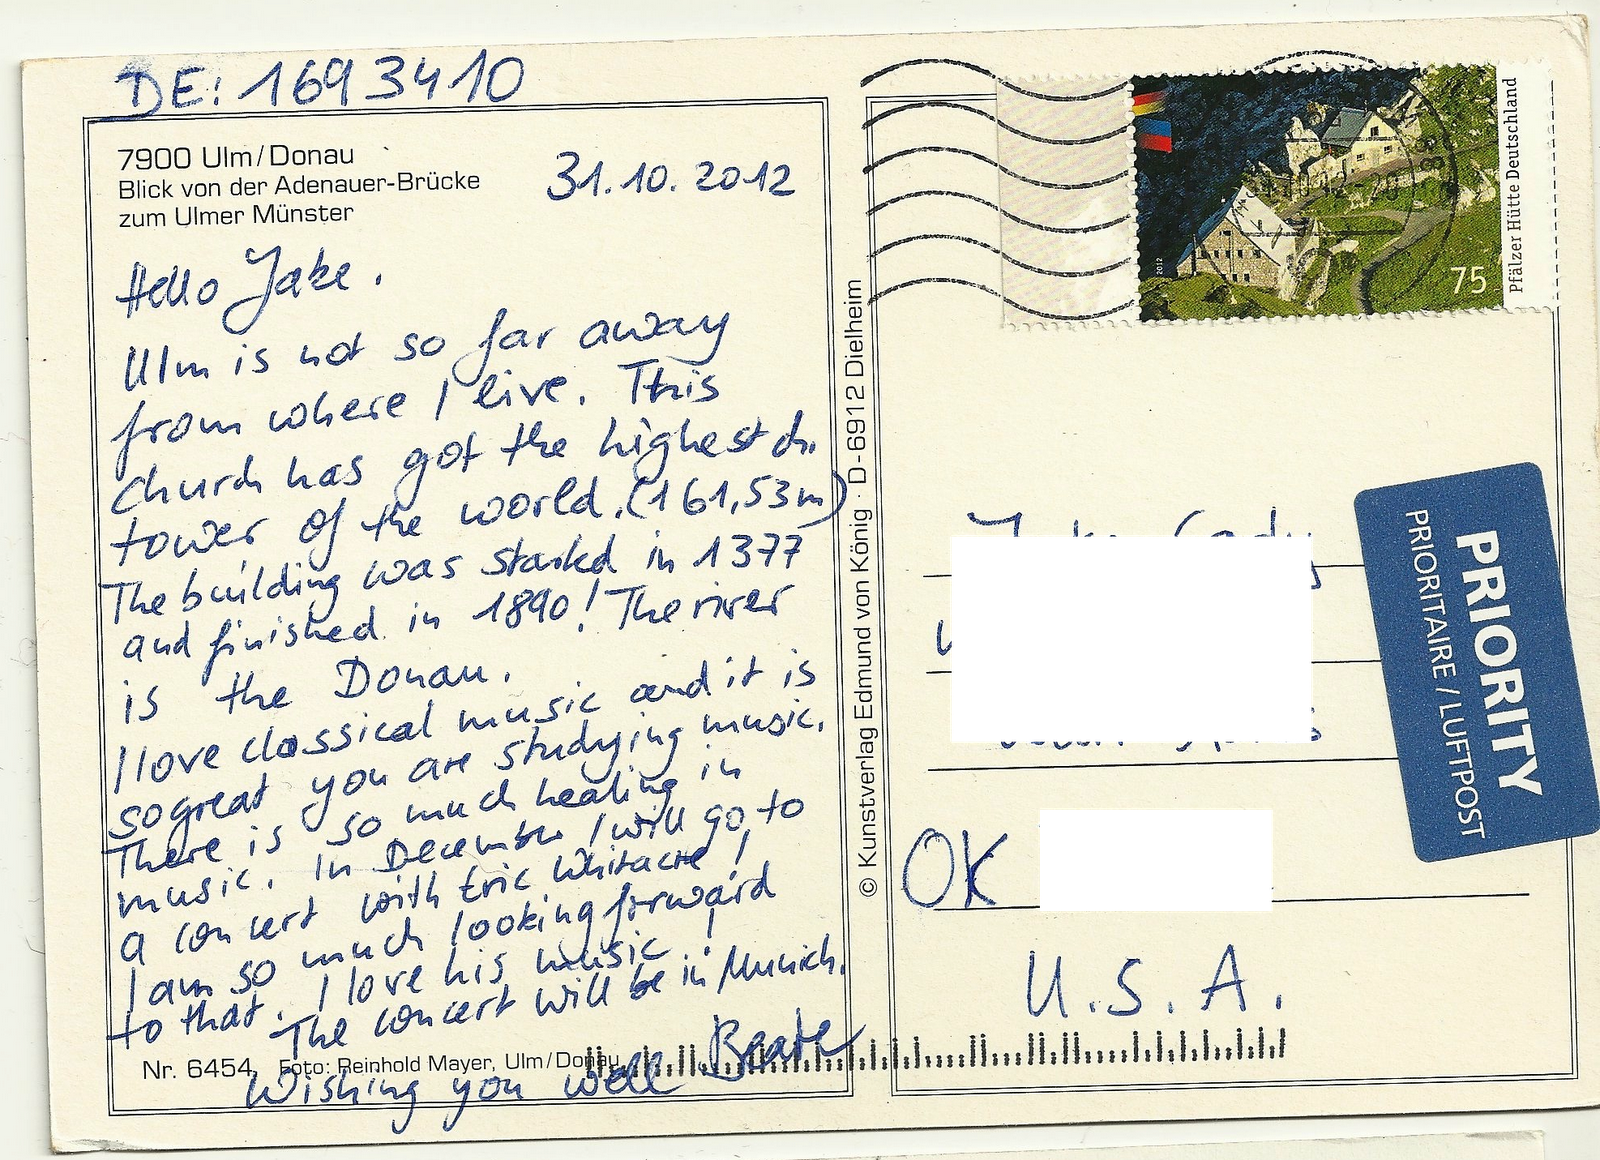 DE: 1693410
7900 Ulm/Donau
Blick von der Adenauer-Brücke
zum Ulmer Münster
31.10.2012
Hello Jake.
Ulm is not so far away
from where I live. This
church has got the highest ch.
tower of the world. (161,53m)
The building was started in 1377
and finished in 1890! The river
is the Donau.
I love classical music and it is
so great you are studying music.
There is so much healing in
music. In December I will go to
a concert with Eric Whitacre!
I am so much looking forward
to that. I love his music!
The concert will be in Munich.
Nr. 6454, Foto: Reinhold Mayer, Ulm/Donau
Wishing you well Beate
© Kunstverlag Edmund von König · D-6912 Dielheim
2012
75
Pfälzer Hütte Deutschland
PRIORITY
PRIORITAIRE / LUFTPOST
OK
U.S.A.